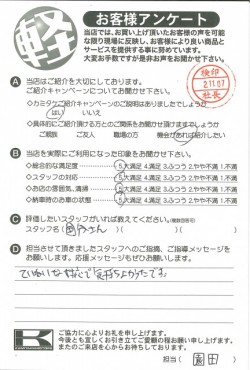 軽
お客様アンケート
当店では、お買い上げ頂いたお客様の声を可能
な限り現場に反映し、お客様により良い商品と
サービスを提供する事に努めています。
大変お手数ですが是非お声をお聞かせ下さい。
検印
2.11.07
社長
A 当店はご紹介を大切にしております。
ご紹介キャンペーンについてお聞かせ下さい。
◇カミタケご紹介キャンペーンのご説明はありましたでしょうか
はい いいえ
◇具体的にご紹介頂ける方とのご関係をお聞かせ頂けますでしょうか
ご親族 ご友人 職場の方 機会があれば紹介したい
B 当店を実際にご利用になった印象をお聞かせ下さい。
◇総合的な満足度 5.大満足 4.満足 3.ふつう 2.やや不満 1.不満
◇スタッフの対応 5.大満足 4.満足 3.ふつう 2.やや不満 1.不満
◇お店の雰囲気、清掃 5.大満足 4.満足 3.ふつう 2.やや不満 1.不満
◇納車時のお車の状態 5.大満足 4.満足 3.ふつう 2.やや不満 1.不満
C 評価したいスタッフがいれば教えてください。(複数回答可)
スタッフ名( さん )( )( )
D 担当させて頂きましたスタッフへのご指摘、ご指導メッセージを
お願いします。応援メッセージもぜひお願いします。
ていねいな対応で気持ちよかったです。
K
ご協力に心よりお礼を申し上げます。
今後とも宜しくお引き立てご愛顧の程お願い申し上げます。
またのご来店を心からお待ちしております。
担当( 園田 )